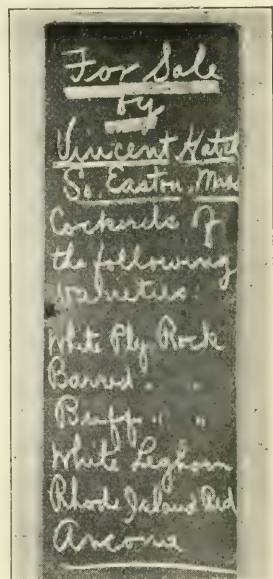 For Sale
by
Vincent Hatch
So. Easton, Mass
Cockerels of
the following
varieties:
White Ply Rock
Barred " "
Buff " "
White Leghorn
Rhode Island Red
Ancona